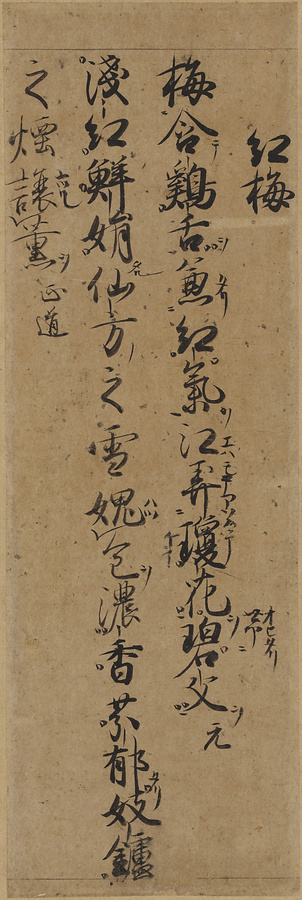 紅梅
梅含鷄舌兼紅氣江弄瓊花碧文元
淺紅鮮娟仙方之雪愧色濃香芬郁妓鑪
之煙讓薫正道